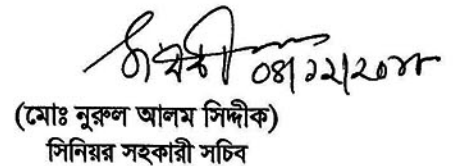 ০৪/১২/২০১৮
(মোঃ নুরুল আলম সিদ্দীক)
সিনিয়র সহকারী সচিব